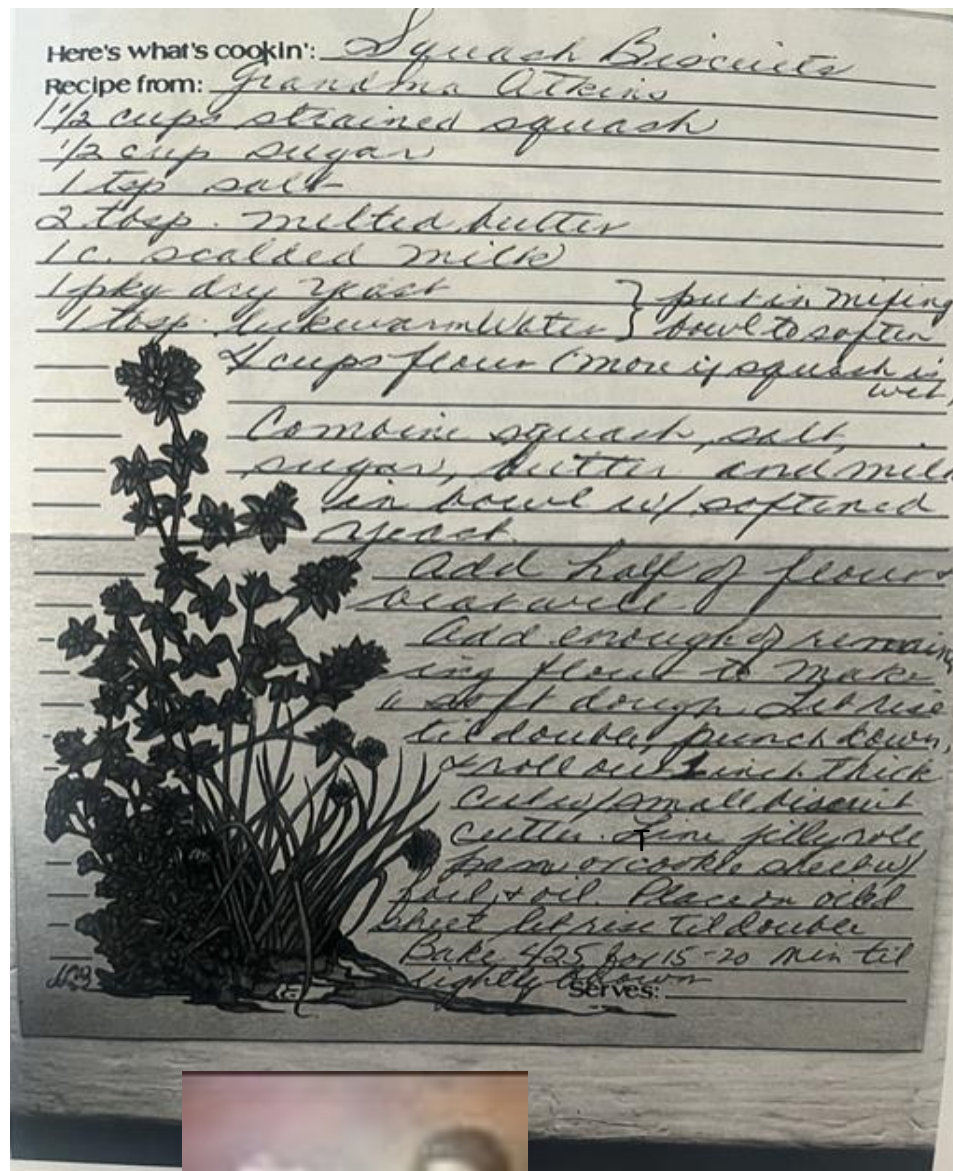 Here's what's cookin': Squash Biscuits
Recipe from: Grandma Atkins
1 1/2 cups strained squash
1/2 cup sugar
1 tsp salt
2 tbsp. melted butter
1 c. scalded milk
1 pkg dry yeast } put in mixing
1 tbsp. lukewarm Water } bowl to soften
4 cups flour (more if squash is
wet)
Combine squash, salt,
sugar, butter and milk
in bowl w/ softened
yeast.
Add half of flour &
beat well
Add enough of remain
ing flour to make
soft dough. Let rise
til double, punch down,
& roll out 1 inch thick
Cut w/ small biscuit
cutter. Line jelly roll
pan or cookie sheet w/
foil & oil. Place on oiled
sheet let rise til double
Bake 425 for 15-20 Min til
lightly brown
Serves: